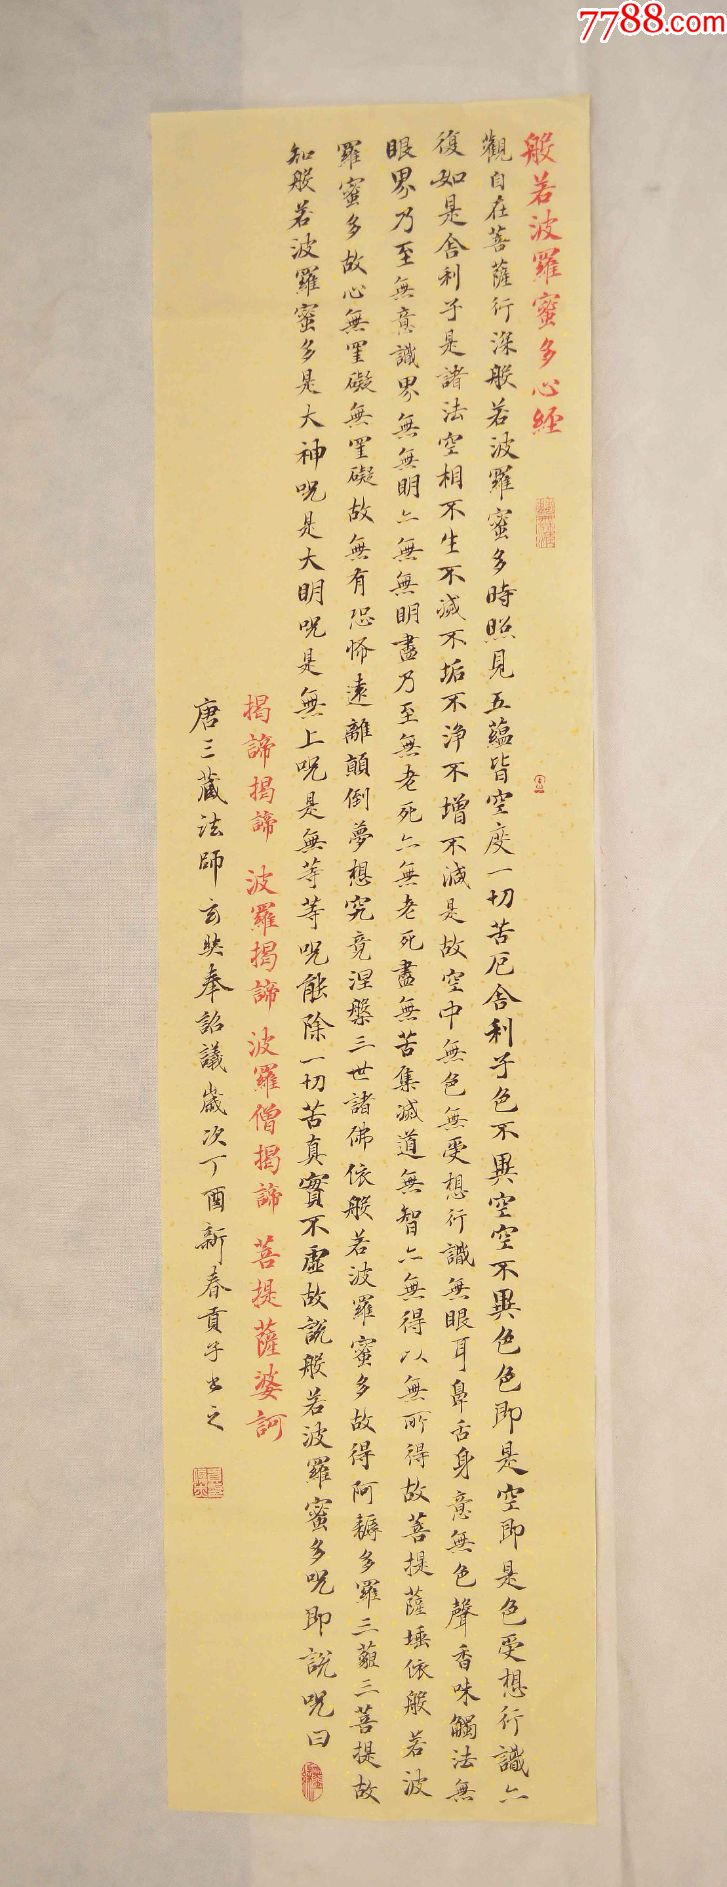 7788.com
般若波羅蜜多心經
觀自在菩薩行深般若波羅蜜多時照見五蘊皆空度一切苦厄舍利子色不異空空不異色色即是空即是色受想行識亦
復如是舍利子是諸法空相不生不滅不垢不淨不增不減是故空中無色無受想行識無眼耳鼻舌身意無色聲香味觸法無
眼界乃至無意識界無無明亦無無明盡乃至無老死亦無老死盡無苦集滅道無智亦無得以無所得故菩提薩埵依般若波
羅蜜多故心無罣礙無罣礙故無有恐怖遠離顛倒夢想究竟涅槃三世諸佛依般若波羅蜜多故得阿耨多羅三藐三菩提故
知般若波羅蜜多是大神呪是大明呪是無上呪是無等等呪能除一切苦真實不虛故說般若波羅蜜多呪即說呪曰
揭諦揭諦 波羅揭諦 波羅僧揭諦 菩提薩婆訶
唐三藏法師玄奘奉詔議歲次丁酉新春貢子書之